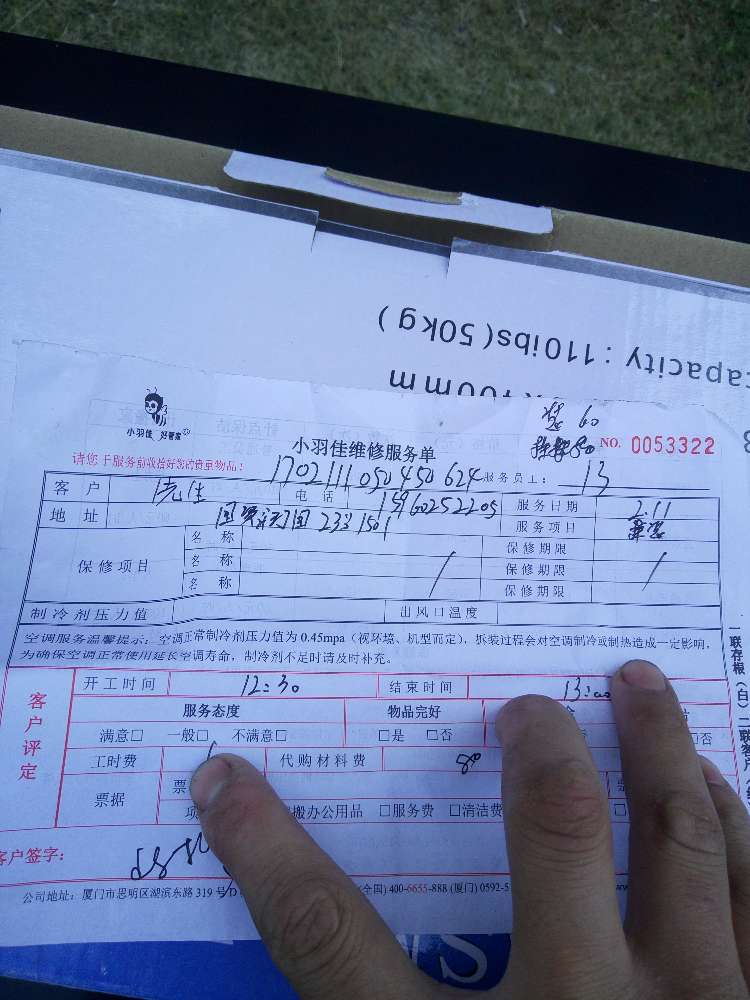 apacity : 110ibs(50kg)
小羽佳 好管家
小羽佳维修服务单
60
NO. 0053322
请您于服务前收拾好您的贵重物品:
1702111050450624
服务员工: 13
客户 先生 电话 15960252205 服务日期 2.11
地址 233 1501 服务项目
保修项目 名称 保修期限
名称 保修期限
名称 保修期限
制冷剂压力值 出风口温度
空调服务温馨提示: 空调正常制冷剂压力值为 0.45mpa (视环境、机型而定), 拆装过程会对空调制冷或制热造成一定影响,
为确保空调正常使用延长空调寿命, 制冷剂不足时请及时补充。
客户评定
开工时间 12:30 结束时间 13:00
服务态度 物品完好
满意□ 一般□ 不满意□ □是 □否 □否
工时费 代购材料费 80
票据 票
搬办公用品 □服务费 □清洁费
客户签字:
公司地址: 厦门市思明区湖滨东路 319 号 (全国) 400-6655-888 (厦门) 0592-5
一联存根(白) 二联客户